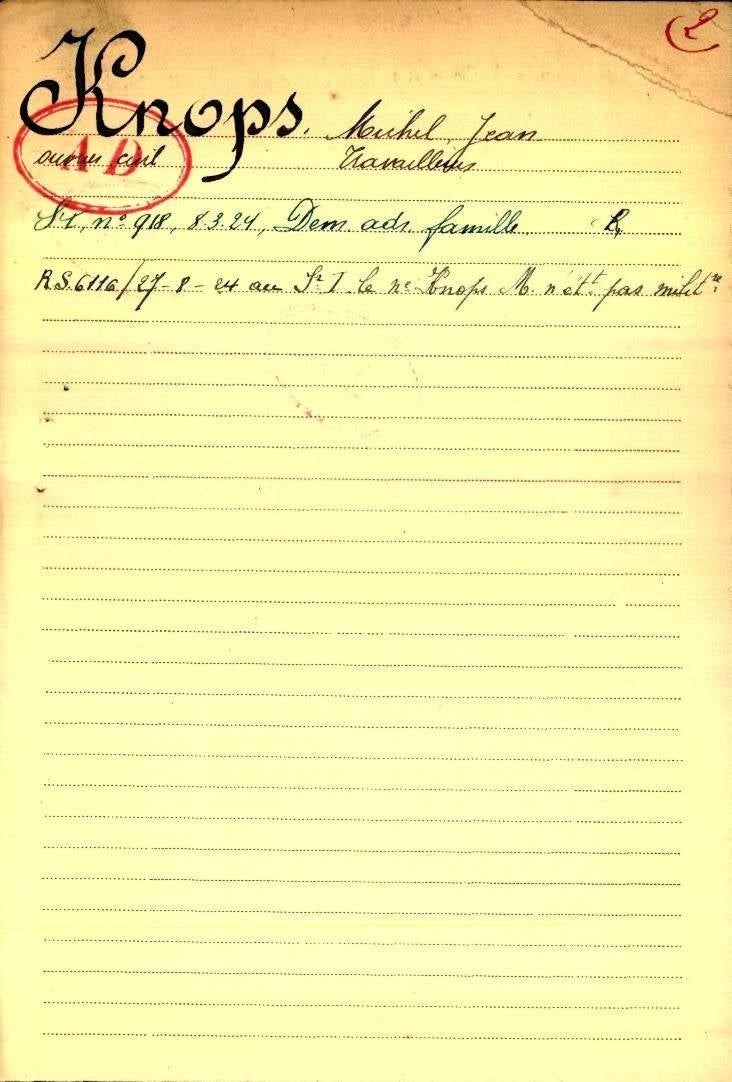 2
Knops. Michel Jean
A D
ouvrier civil Travailleurs
St, n° 918, 8.3.24, Dem adr. famille R,
RS.6116/27-8-24 au St I le né Knops M. n'ét.t pas milit.re